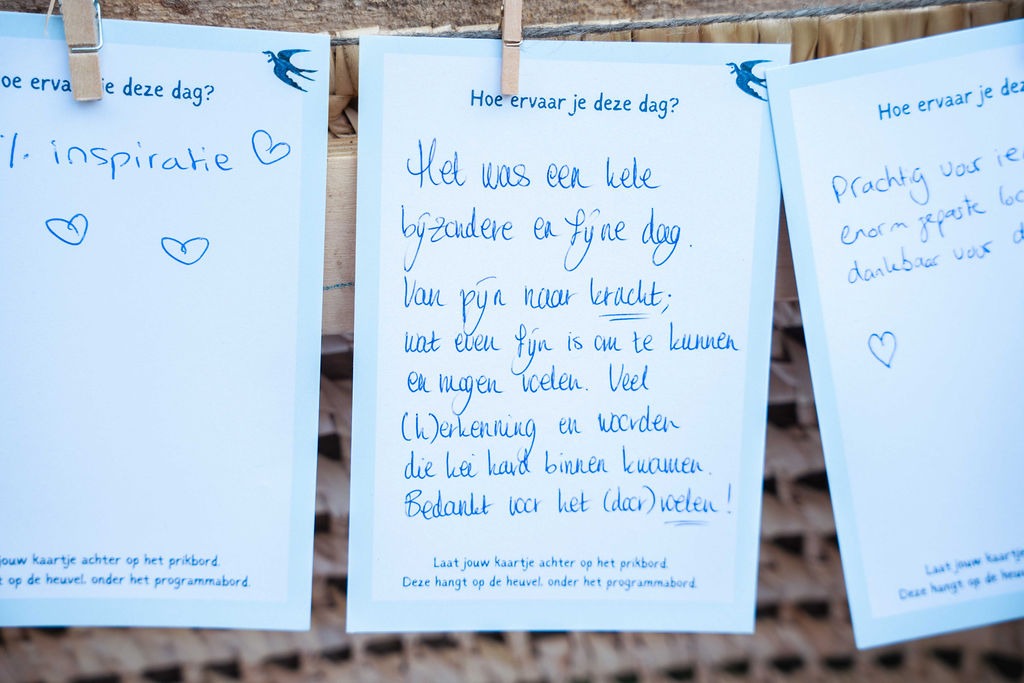 oe ervaar je deze dag?
%. inspiratie
jouw kaartje achter op het prikbord.
t op de heuvel, onder het programmabord.
Hoe ervaar je deze dag?
Het was een hele
bijzondere en fijne dag.
Van pijn naar kracht;
wat even fijn is om te kunnen
en mogen voelen. Veel
(h)erkenning en woorden
die kei hard binnen kwamen.
Bedankt voor het (door)voelen!
Laat jouw kaartje achter op het prikbord.
Deze hangt op de heuvel, onder het programmabord.
Hoe ervaar je dez
Prachtig voor ie
enorm gepaste loc
dankbaar voor d
Laat jouw kaartje
Deze hangt op de heuv